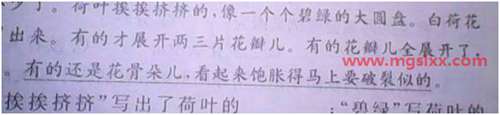 少了。荷叶挨挨挤挤的,像一个个碧绿的大圆盘。白荷花
出来。有的才展开两三片花瓣儿。有的花瓣儿全展开了,
www.mgslxx.com
。有的还是花骨朵儿,看起来饱胀得马上要破裂似的。
挨挨挤挤”写出了荷叶的 ;“碧绿”写荷叶的